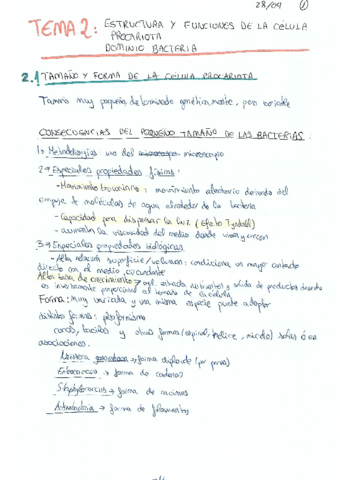 28/09 1
TEMA 2: ESTRUCTURA Y FUNCIONES DE LA CÉLULA
PROCARIOTA
DOMINIO BACTERIA
2.1 TAMAÑO Y FORMA DE LA CÉLULA PROCARIOTA
Tamaño muy pequeño determinado genéticamente, pero variable
CONSECUENCIAS DEL PEQUEÑO TAMAÑO DE LAS BACTERIAS:
1→ Metodológicas: uso del microscopio
2→ Especiales propiedades físicas:
- Movimiento browniano: movimiento aleatorio derivado del
empuje de moléculas de agua alrededor de la bacteria
- Capacidad para dispersar la luz (Efecto Tyndall)
- aumentan la viscosidad del medio donde viven y crecen
3→ Especiales propiedades biológicas.
- Alta relación superficie/volumen: condiciona un mayor contacto
directo con el medio circundante
Alta tasa de crecimiento → entrada nutrientes y salida de productos desecho
es inversamente proporcional al tamaño de la célula
Forma: Muy variada y una misma especie puede adoptar
distintas formas: pleomorfismo
cocos, bacilos y otras formas (espiral, hélice, micelio) solas ó en
asociaciones.
Neisseria → forma diplo de (por pares)
Enterococcus → forma de cadeta?
Staphylococcus → forma de racimos
→ forma de filamentos